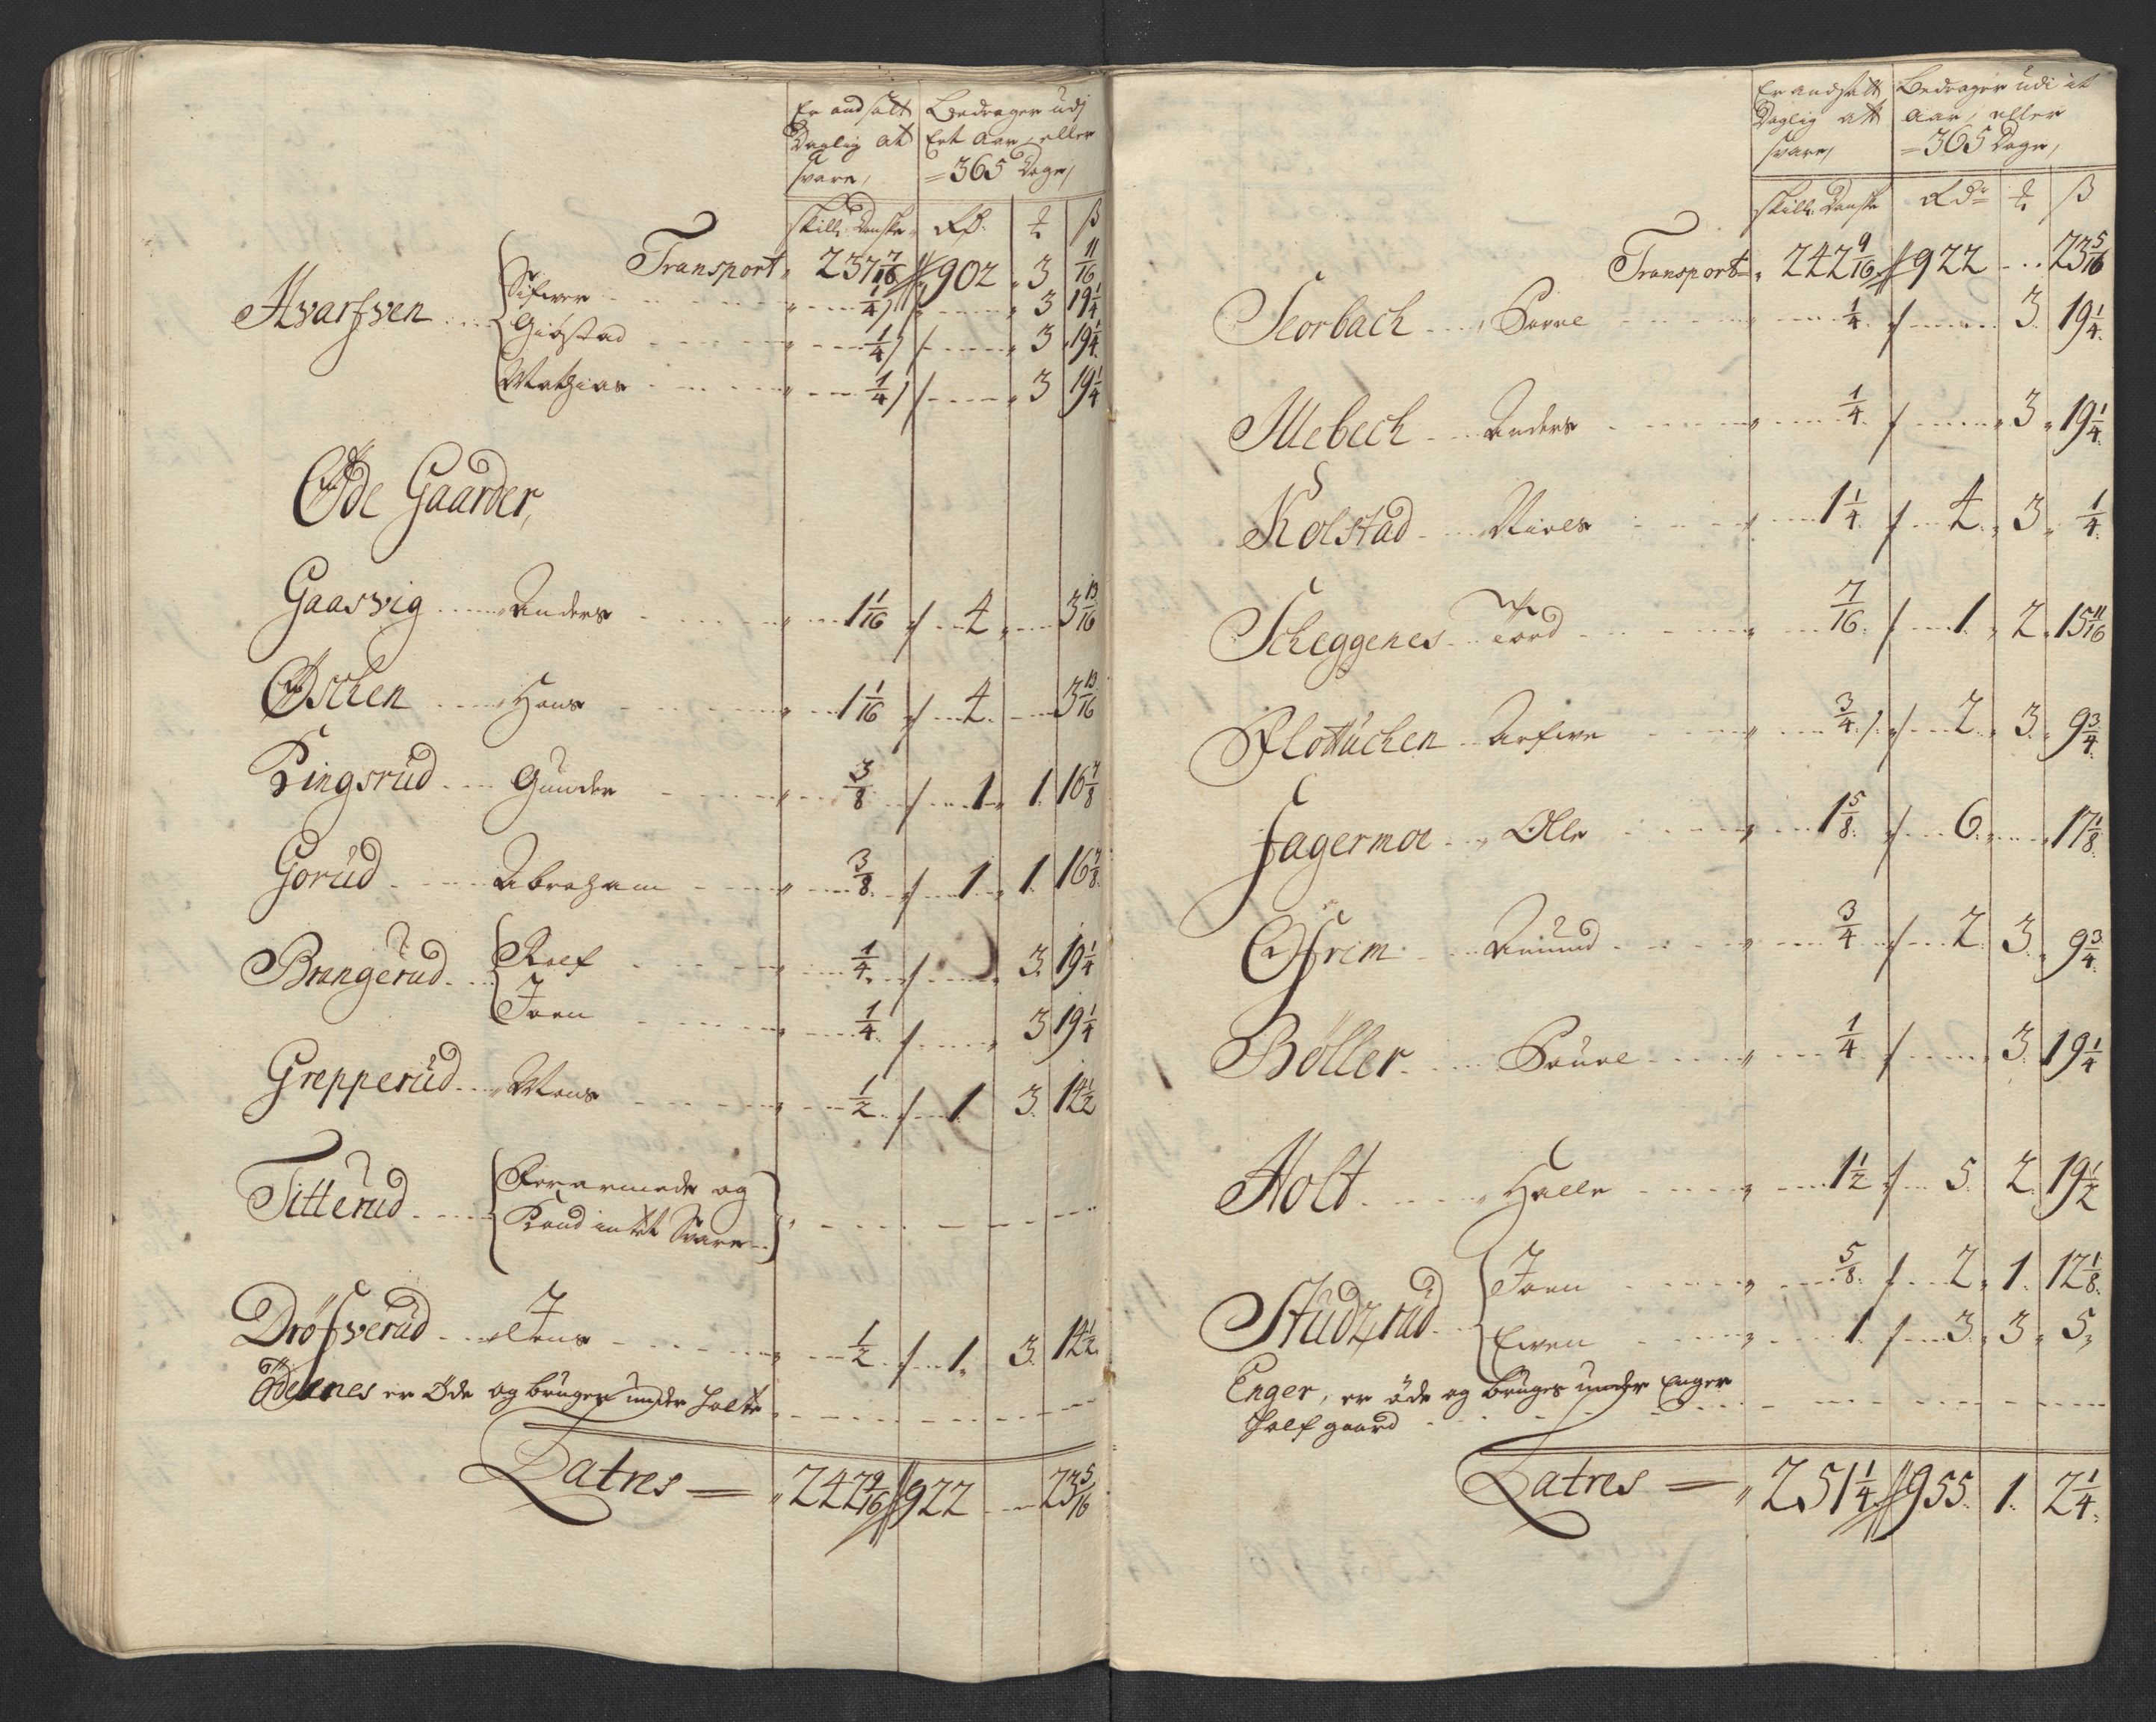 Er andsatt
Daglig at
svare,
Bedrager udj
Eet Aar, eller
=365 Dage,
skill: Danske
Rd. ß
Transport 237 7/16 902 3 11/16
Hvarfven Sifver 1/4 3 19 1/4
Giøstad 1/4 3 19 1/4
Mathias 1/4 3 19 1/4
Øde Gaarder,
Gaasvig Anders 1 1/16 4 3 13/16
Øschen Hans 1 1/16 4 3 13/16
Ringsrud Gunder 3/8 1 1 16 7/8
Gorud Abraham 3/8 1 1 16 7/8
Brangerud Roef 1/4 3 19 1/4
Joen 1/4 3 19 1/4
Grepperud Mons 1/2 1 3 14 1/2
Titterud Forarmede og
Kand intet Svare
Drøfverud Jens 1/2 1 3 14 1/2
Ødenes er Øde og bruges under Holte
Latres = 242 9/16 922 23 5/16
Er andsatt
Daglig att
svare,
Bedrager udi it
Aar, eller
=365 Dage,
skill: Danske Rdr ß
Transport 242 9/16 922 23 5/16
Scorbach 1/4 3 19 1/4
Illebech Anders 1/4 3 19 1/4
Kolstad Niels 1 1/4 4 3 1/4
Scheggenes Tord 7/16 1 2 15 11/16
Flottuchen 3/4 2 3 9 3/4
Fagermoe Olle 1 5/8 6 17 1/8
Ofrim Amund 3/4 2 3 9 3/4
Bøller 1/4 3 19 1/4
Holt Halle 1 1/2 5 2 19 1/2
Studzrud Joen 5/8 2 1 12 1/8
Even 1 3 3 5
Enger, er øde og bruges under Enger
Half gaard
Latres = 251 1/4 955 1 2 1/4